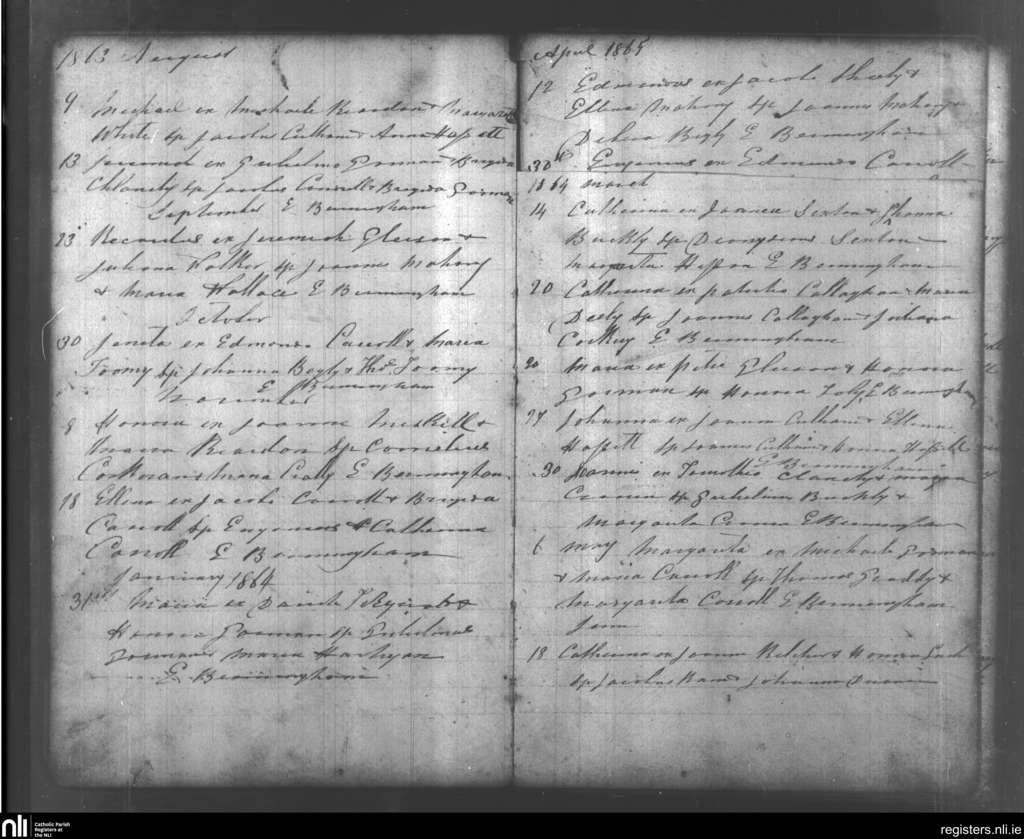 1863 August
9 Michael ex Michaele Reardon & Margarita
White sp Jacobus Culhane & Anna Hassett
13 Jeremiah ex Gulielmo Gorman & Brigida
Clanchy sp Jacobus Connell & Brigida Gorman
September E Bermingham
23 Ricardus ex Jeremiah Gleeson &
Juliana Walker sp Joannes Mahony
& Maria Wallace E Bermingham
October
30 ex Edmundo Carroll & Maria
Toomy sp Johanna Begly & Thos Toomy
E Bermingham
November
8 Honora ex Joanne Meskill &
Maria Reardon sp Cornelius
Corkoran & Maria E Bermingham
18 Ellena ex Jacobo Carroll & Brigida
Carroll sp Eugenius & Catherina
Carroll E Bermingham
January 1864
31st Maria ex David &
Honora Gorman sp Gulielmus
Gorman & Maria Hartigan
E Bermingham
April 1865
12 Edmundus ex Jacobo Sheehy &
Ellena Mahony sp Joannes Mahony &
Debora Begly E Bermingham
30th Eugenius ex Edmundo Carroll
1864 March
14 Catherina ex Joanne Sexton & Johanna
Buckly sp Dionysius Sexton
Margarita E Bermingham
20 Catherina ex Patricio Callaghan & Maria
Deely sp Joannes Callaghan & Juliana
E Bermingham
20 Maria ex Petro Gleeson & Honora
Gorman sp Honora E Bermingham
27 Johanna ex Joanne Culhane & Ellena
Hassett sp Joannes Culhane & Honora Hassett
E Bermingham
30 Joannes ex Timotheo Clanchy & Maria
Cronin sp Gulielmus Buckly &
Margarita E Bermingham
6 May Margarita ex Michaele Gorman
& Maria Carroll sp Thomas Gready &
Margarita Carroll E Bermingham
June
18 Catherina ex Joanne Kelcher & Honora
sp Jacobus & Johanna
nli
Catholic Parish
Registers at
the NLI
registers.nli.ie